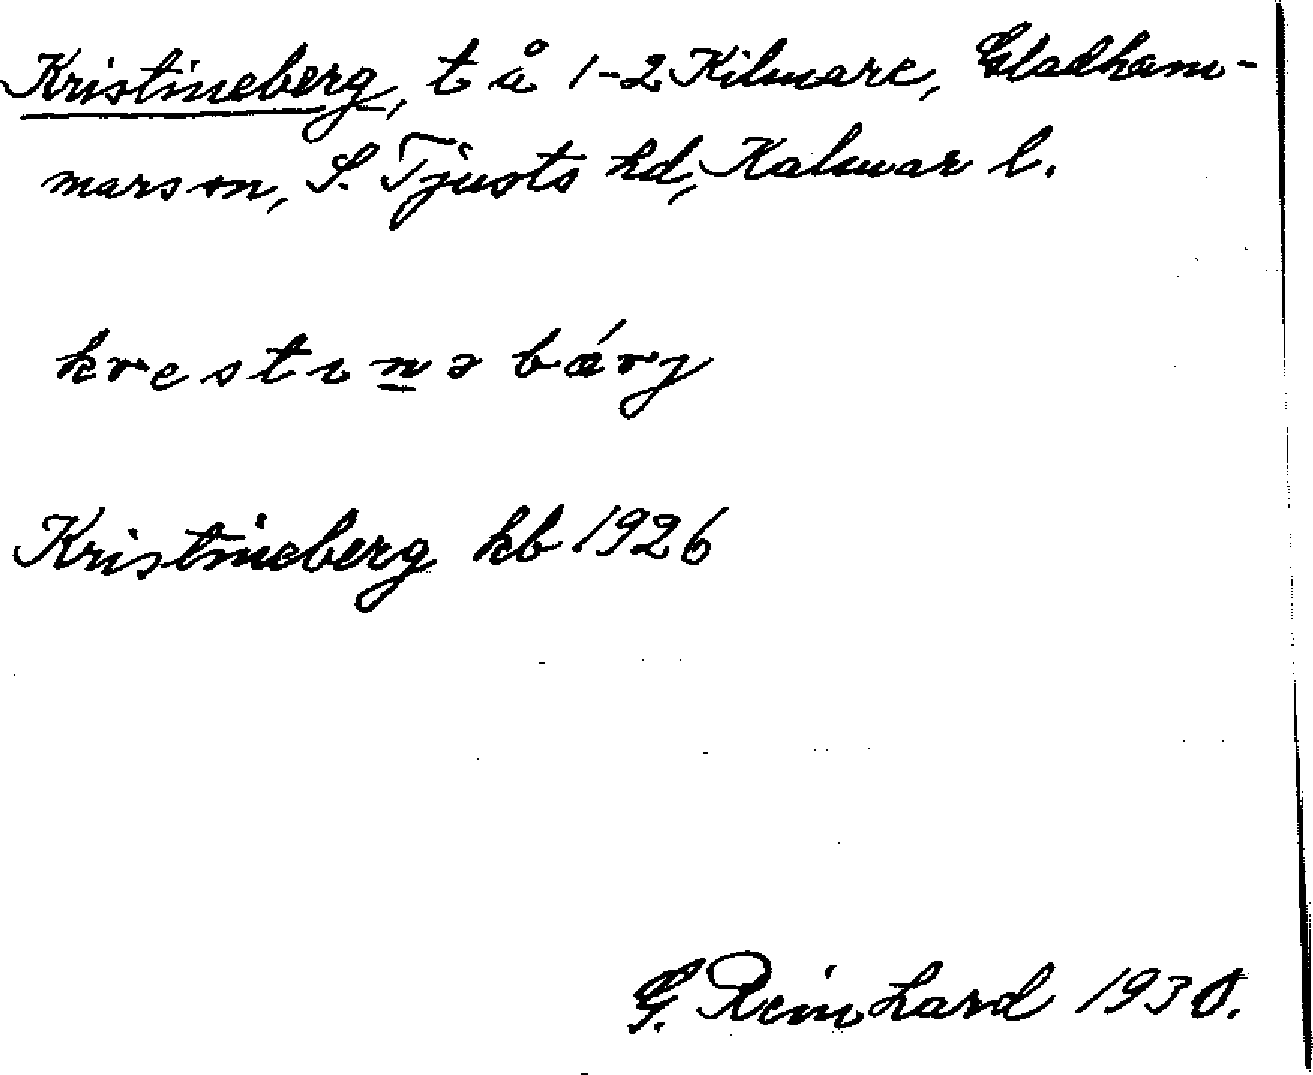 Kristineberg, t å 1-2 Kilmare, Gladham-
mars sn, S. Tjusts hd, Kalmar l.
krestınəbærj
Kristineberg kb 1926
G. Reinhard 1930.